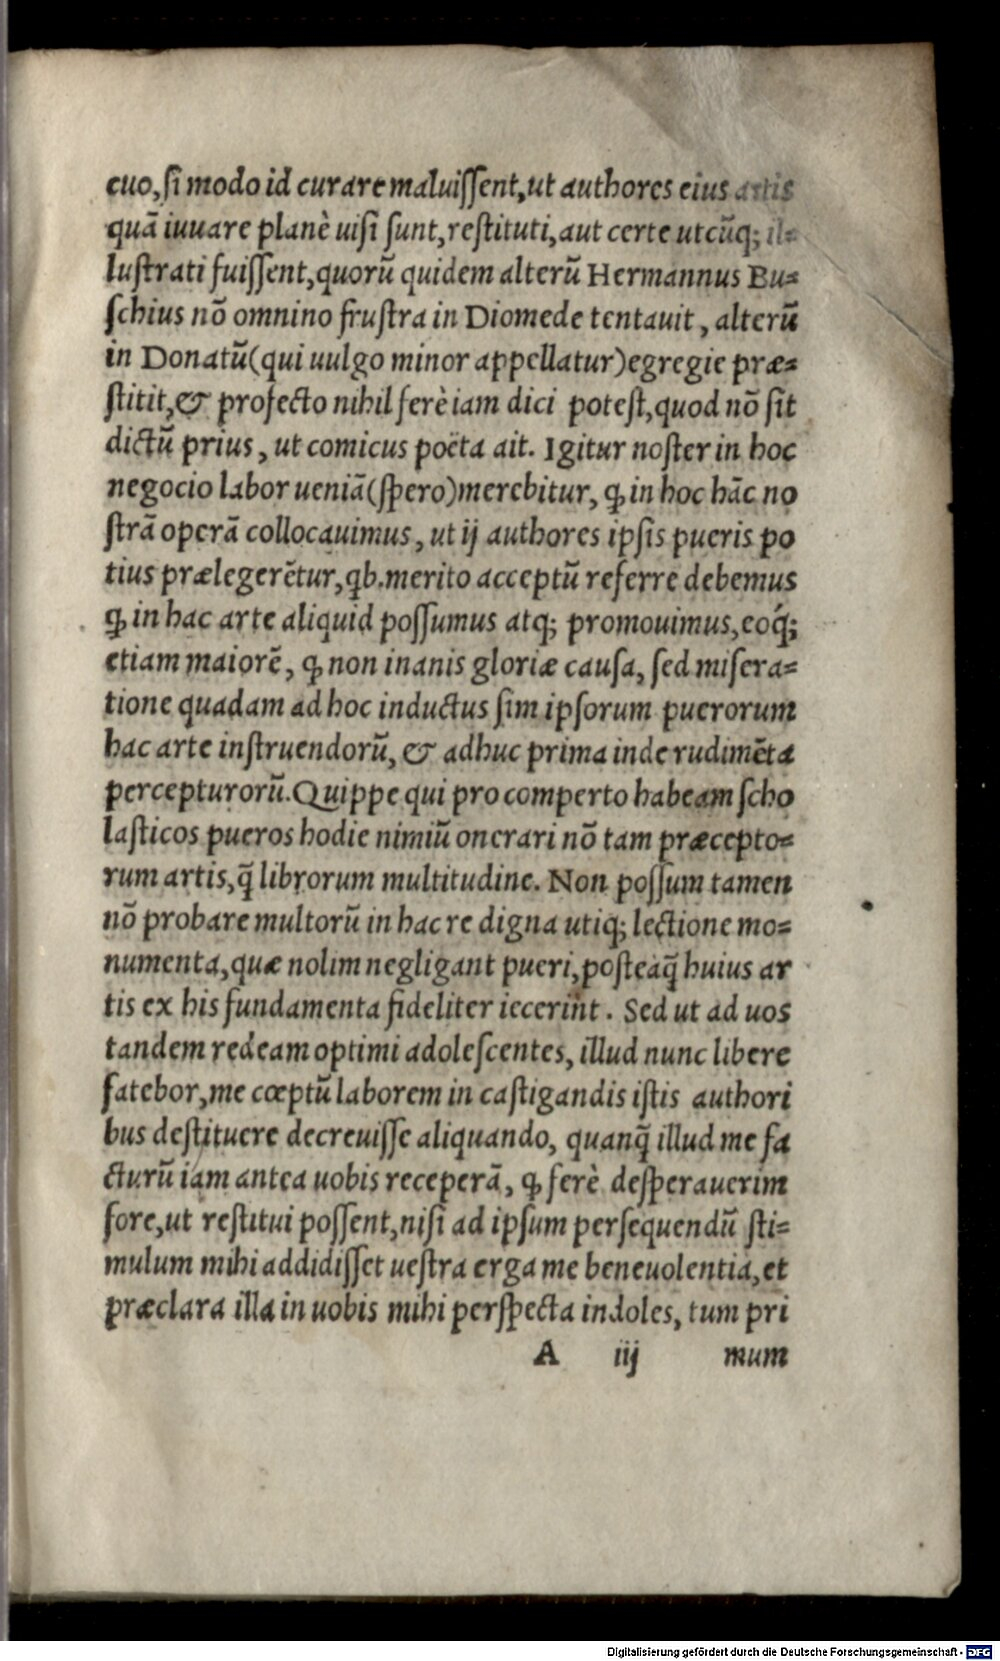 cuo,ſi modo id curare maluiſſent,ut authores eius artis
quā iuuare planè uiſi ſunt,reſtituti,aut certe utcūq; il⸗
luſtrati fuiſſent,quorū quidem alterū Hermannus Bu⸗
ſchius nō omnino fruſtra in Diomede tentauit, alterū
in Donatū(qui uulgo minor appellatur)egregie præ⸗
ſtitit,& profecto nihil ferè iam dici poteſt,quod nō ſit
dictū prius, ut comicus poëta ait. Igitur noſter in hoc
negocio labor ueniā(ſpero)merebitur, ꝙ in hoc hāc no
ſtrā operā collocauimus, ut ij authores ipſis pueris po
tius prælegerētur,qb.merito acceptū referre debemus
ꝙ in hac arte aliquid poſſumus atq; promouimus,eoq́;
etiam maiorē, ꝙ non inanis gloriæ cauſa, ſed miſera⸗
tione quadam ad hoc inductus ſim ipſorum puerorum
hac arte inſtruendorū, & adhuc prima inde rudimēta
percepturorū.Quippe qui pro comperto habeam ſcho
laſticos pueros hodie nimiū onerari nō tam præcepto⸗
rum artis,q̄ librorum multitudine. Non poſſum tamen
nō probare multorū in hac re digna utiq; lectione mo⸗
numenta,quæ nolim negligant pueri,poſteaq̄ huius ar
tis ex his fundamenta fideliter iecerint. Sed ut ad uos
tandem redeam optimi adoleſcentes, illud nunc libere
fatebor,me cœptū laborem in caſtigandis iſtis authori
bus deſtituere decreuiſſe aliquando, quanq̄ illud me fa
cturū iam antea uobis receperā, ꝙ ferè deſperauerim
fore,ut reſtitui poſſent,niſi ad ipſum perſequendū ſti⸗
mulum mihi addidiſſet ueſtra erga me beneuolentia,et
præclara illa in uobis mihi perſpecta indoles, tum pri
A iij mum
Digitalisierung gefördert durch die Deutsche Forschungsgemeinschaft - DFG